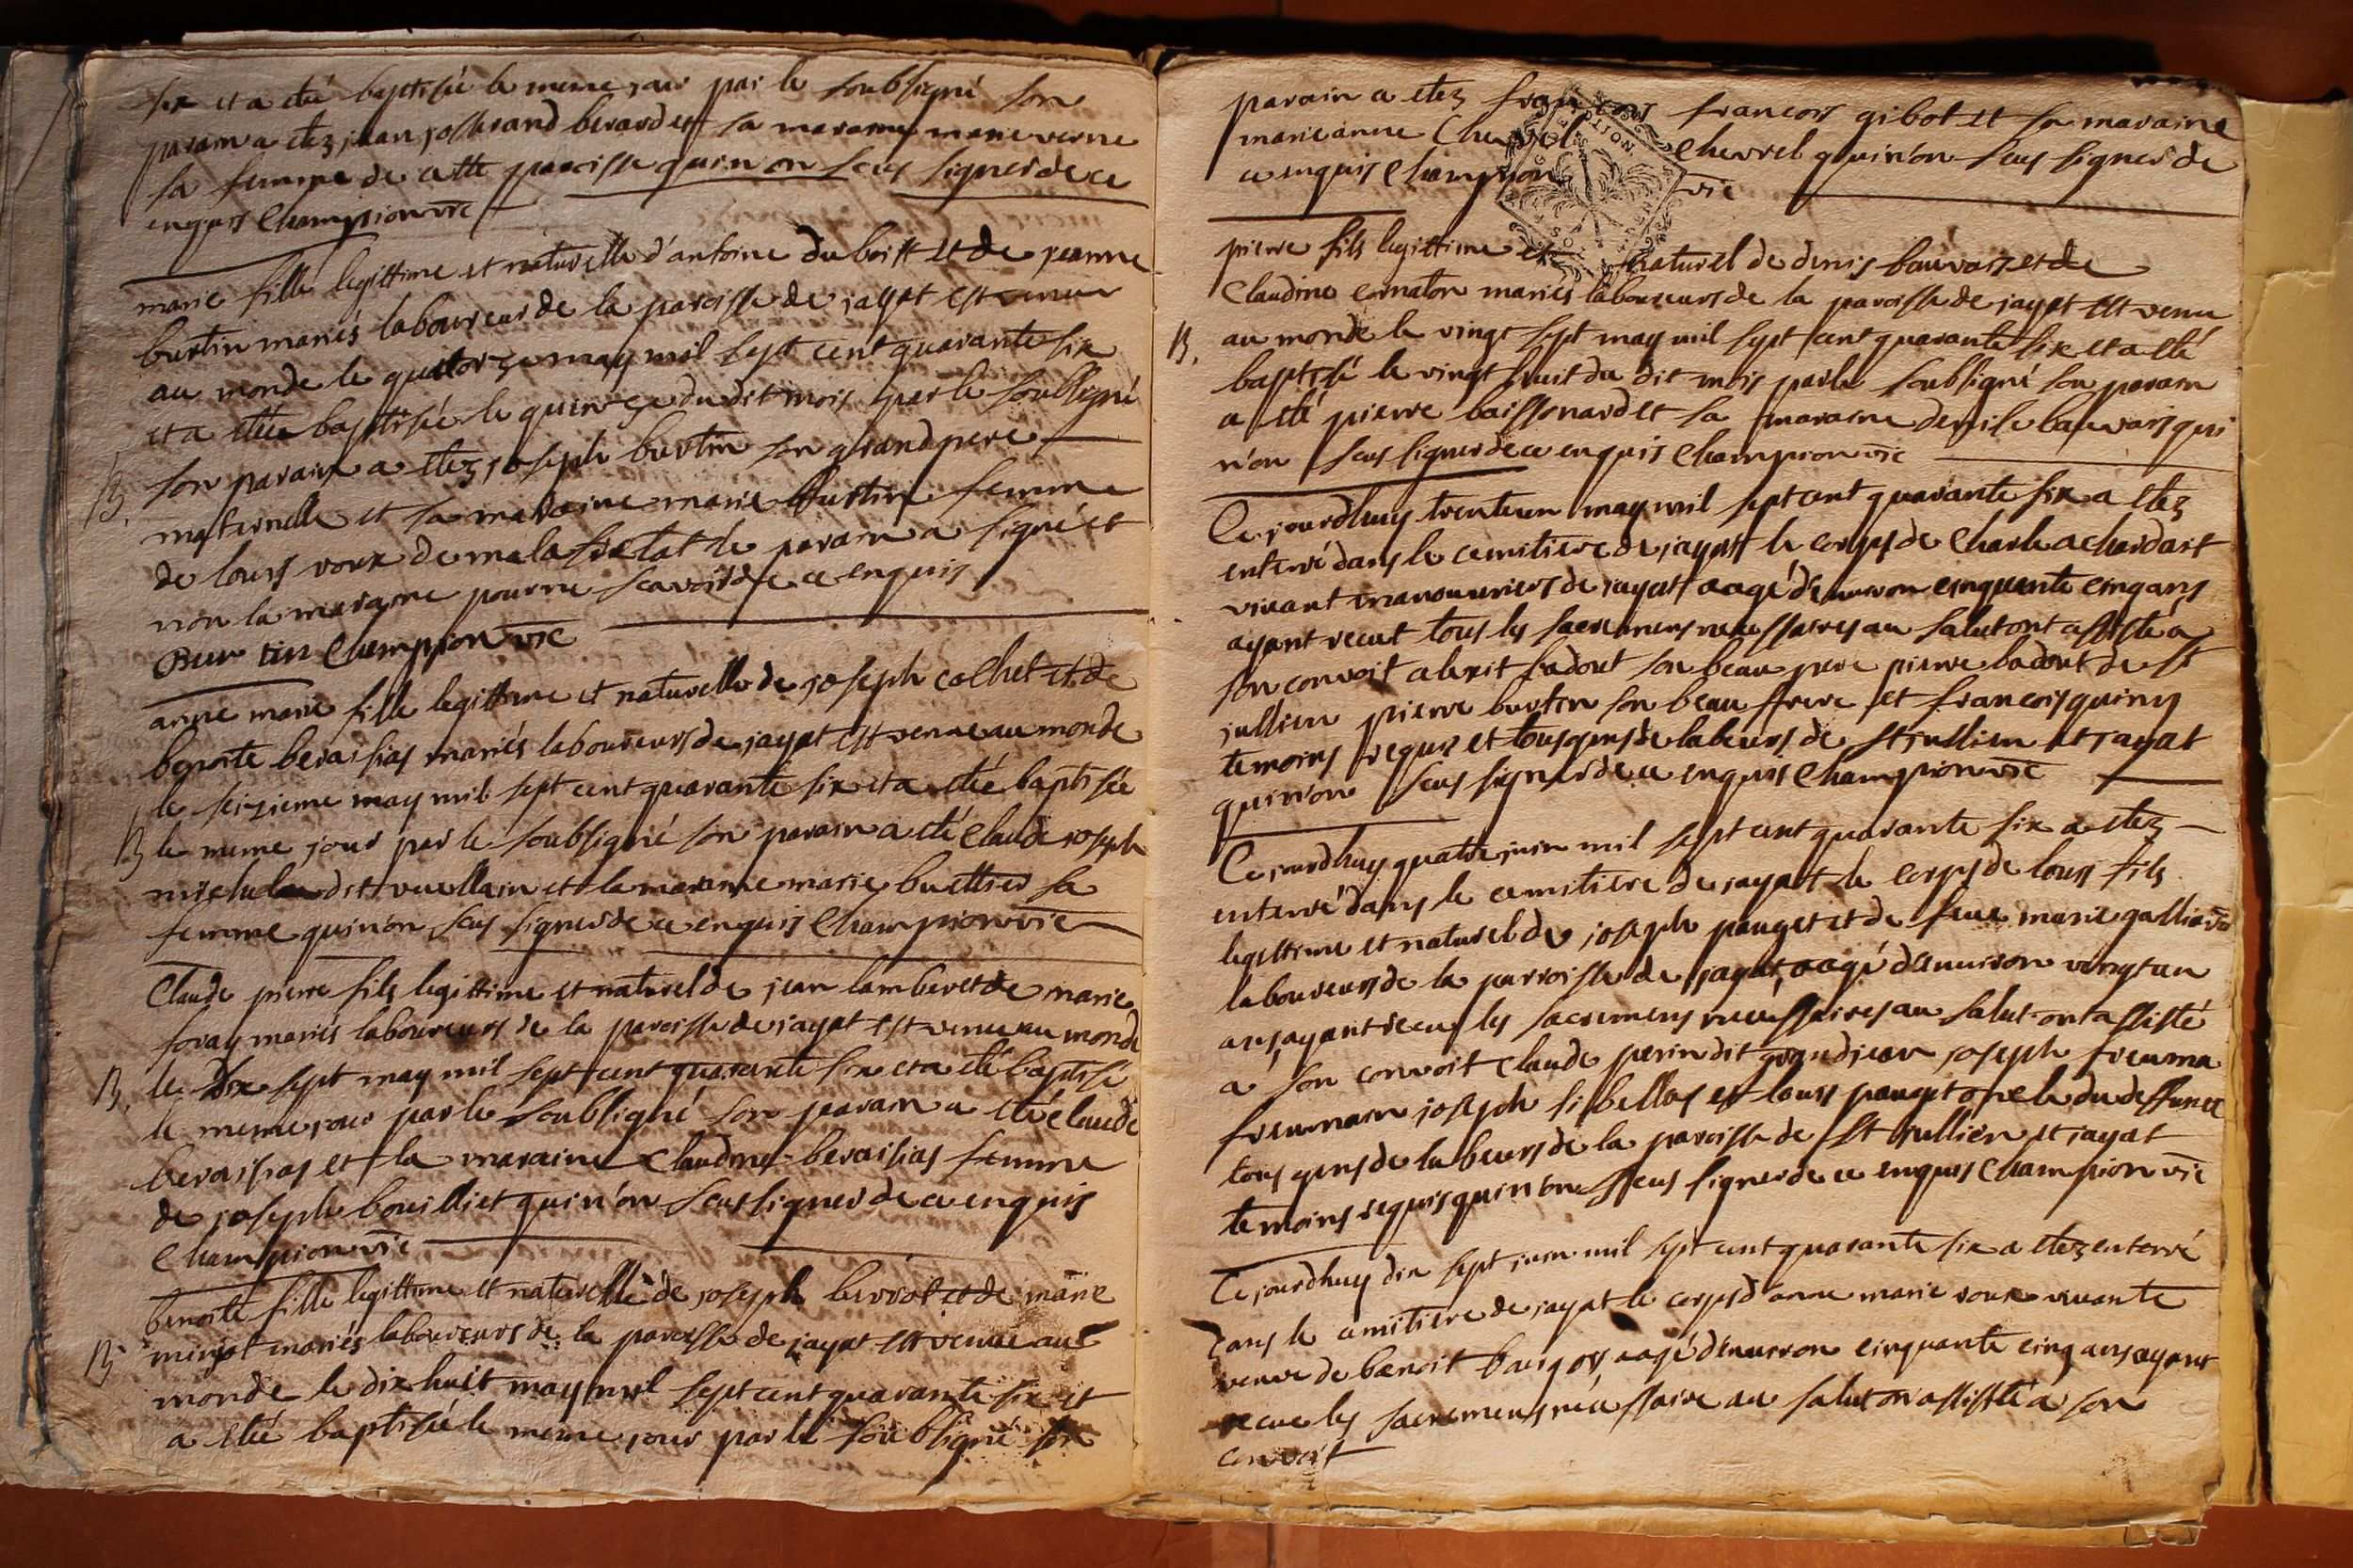 six et a étée baptisée le meme jour par le soubsigné son
parain a etez jean josserand berardet sa maraine marie verne
sa femme de cette paroisse qui n'on sceu signer de ce
enquis Championvic
marie fille legittime et naturelle d'antoine du boist et de jeanne
burtin mariés laboureur de la paroisse de jayat est venue
au monde le quatorze may mil sept cent quarante six
et a étée baptisée le quinze du dit mois par le soubsigné
B. son parain a etez joseph burtin son grand pere
maternelle et sa maraine marie burtin femme
de louis roux de malafretat le parain a signé et
non la maraine pour ne scavoir de ce enquis
Bur tin Championvic
anne marie fille legittime et naturelle de joseph cochet et de
benoite beraisias mariés laboureurs de jayat est venue au monde
le seizieme may mil sept cent quarante six et a étée baptisée
B le meme jour par le soubsigné son parain a été Claude joseph
dit et la maraine marie sa
femme qui n'on sceu signer de ce enquis Championvic
Claude pierre fils legittime et naturel de jean lamberet de marie
foray mariés laboureurs de la paroisse de jayat est venu au monde
B. le dix sept may mil sept cent quarante six et a été baptisé
le meme jour par le soubsigné son parain a été claude
beraisias et la maraine Claudine beraisias femme
de joseph bouilliet qui n'on sceu signer de ce enquis
Championvic
benoite fille legittime et naturelle de joseph berrot et de marie
B minjot mariés laboureurs de la paroisse de jayat est venue au
monde le dix huit may mil sept cent quarante six et
a étée baptisée le meme jour par le soubsigné son
parain a etez francois francois gibot et sa maraine
marieanne Chevrel Chevrel qui n'on sceu signer de
ce enquis Champion vic
pierre fils legittime et naturel de denis bauvais et de
Claudine cornaton mariés laboureurs de la paroisse de jayat est venu
B. au monde le vingt sept may mil sept cent quarante six et a été
baptisé le vingt huit du dit mois par le soubsigné son parain
a été pierre baissonard et sa maraine denise bauvais qui
n'on sceu signer de ce enquis Championvic
Ce jourdhuy trente un may mil sept cent quarante six a etez
enterré dans le cemitiere de jayat le corps de Charle achardart
vivant manouvriers de jayat aagé d'environ cinquante cinq ans
ayant recut tous les sacremens necessaires au salut ont assisté a
son convoit alexit badout son beau pere pierre badout de st
jullien pierre burtin son beau frere et francois quiny
temoins requis et tous gens de labeurs de st jullien et jayat
qui n'on sceu signer de ce enquis Championvic
Ce jourdhuy quatre juin mil sept cent quarante six a etez
enterré dans le cemitiere de jayat le corps de louis fils
legittime et naturel de joseph pauget et de feue marie
laboureurs de la parroisse de jayat, aagé d'environ vingt un
ans, ayant recu les sacremens necessaires au salut ont assisté
a son convoit Claude perin dit grandjean joseph freuma
freumain joseph sibellas et louis pauget oncle du deffunct
tous gens de labeurs de la paroisse de st jullien et jayat
temoins requis qui n'on sceu signer de ce enquis Championvic
Ce jourdhuy dix sept juin mil sept cent quarante six a etez enterré
dans le cemitiere de jayat le corps d'anne marie roux vivante
veuve de benoit aagé d'environ cinquante cinq ans ayant
recue les sacremens necessaire au salut on assisté a son
convoit